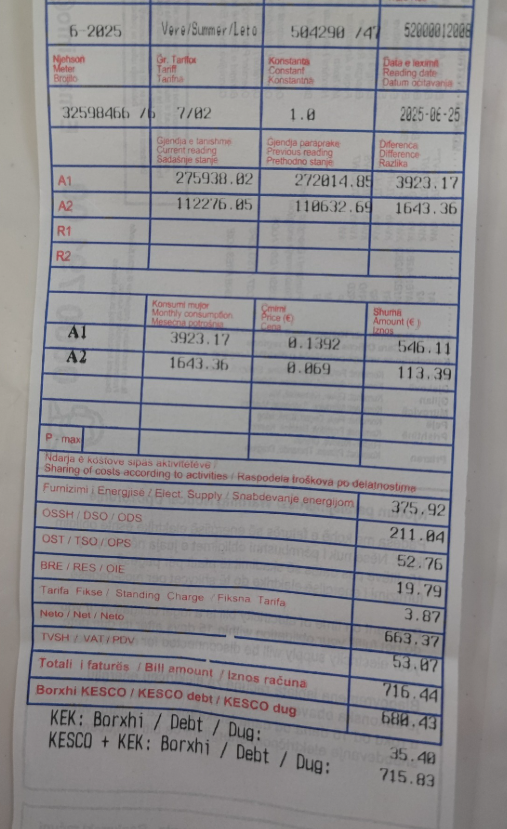 6-2025 Verë/Summer/Leto 504290 /47 52000012008
Njehsori Gr. Tarifor Konstanta Data e leximit
Meter Tariff Constant Reading date
Brojilo Tarifna Konstantna Datum očitavanja
32598466 /6 7/02 1.0 2025-06-25
Gjendja e tanishme Gjendja paraprake Diferenca
Current reading Previous reading Difference
Sadašnje stanje Prethodno stanje Razlika
A1 275938.02 272014.85 3923.17
A2 112276.05 110632.69 1643.36
R1
R2
Konsumi mujor Çmimi Shuma
Monthly consumption Price (€) Amount (€ )
Mesečna potrošnja Cena Iznos
A1 3923.17 0.1392 546.11
A2 1643.36 0.069 113.39
P - max
Ndarja e kostove sipas aktiviteteve /
Sharing of costs according to activities / Raspodela troškova po delatnostima
Furnizimi i Energjisë / Elect. Supply / Snabdevanje energijom 375.92
OSSH / DSO / ODS 211.04
OST / TSO / OPS 52.76
BRE / RES / OIE 19.79
Tarifa Fikse / Standing Charge / Fiksna Tarifa 3.87
Neto / Net / Neto 663.37
TVSH / VAT / PDV 53.07
Totali i faturës / Bill amount / Iznos računa 716.44
Borxhi KESCO / KESCO debt / KESCO dug 680.43
KEK: Borxhi / Debt / Dug: 35.40
KESCO + KEK: Borxhi / Debt / Dug: 715.83